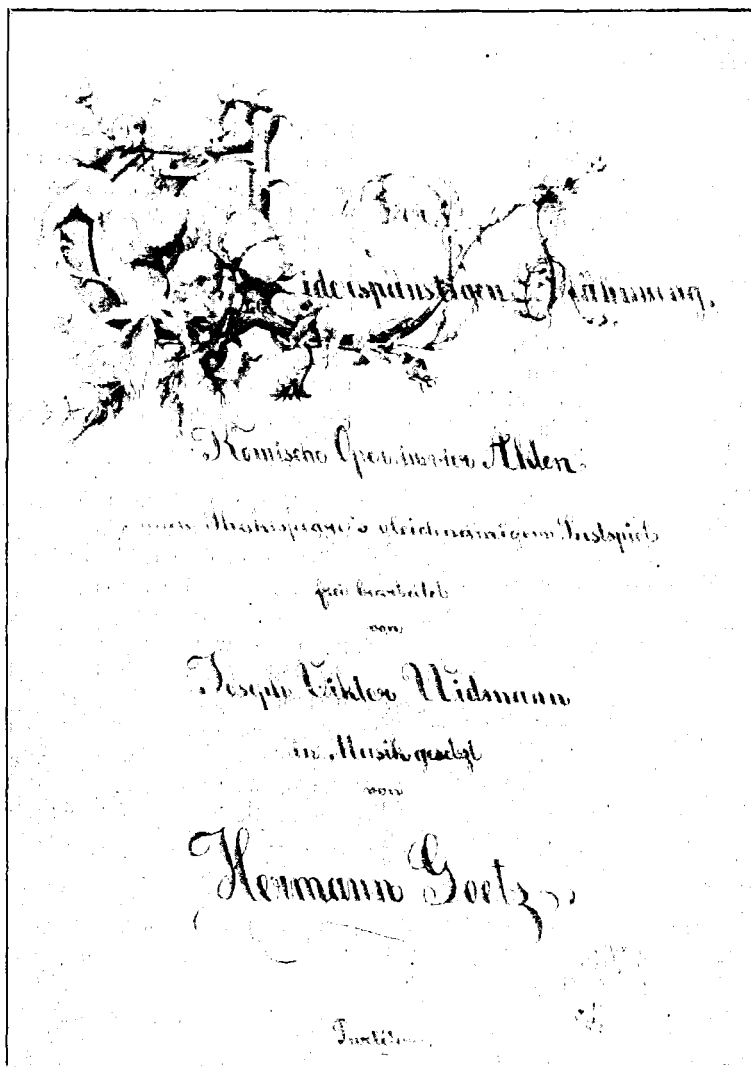 Der
Widerspänstigen Zähmung.
Komische Oper in vier Akten
nach Shakespeare's gleichnamigem Lustspiel
frei bearbeitet
von
Joseph Viktor Widmann
in Musik gesetzt
von
Hermann Goetz.
Partitur.